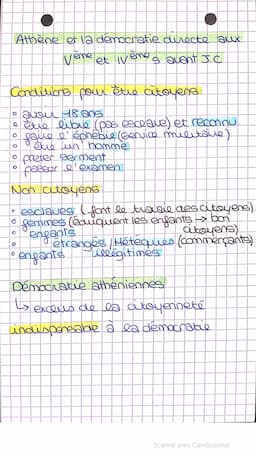 Athène et la démocratie directe aux
Vème et IVème s avant J.C
Conditions pour être citoyens:
• avoir 18 ans
• être libre (pas esclave) et reconnu
• faire l'éphébie (service militaire)
• être un homme
• preter serment
• passer l'examen
Non citoyens:
• esclaves (font le travaie des citoyens)
• femmes (éduquent les enfants → bon
citoyens)
• enfants
• étrangés/Métèques (commerçants)
• enfants illégitimes
Démocratie athéniennes
↳ exclus de la citoyenneté
indispensable à la démocratie
Scanné avec CamScanner